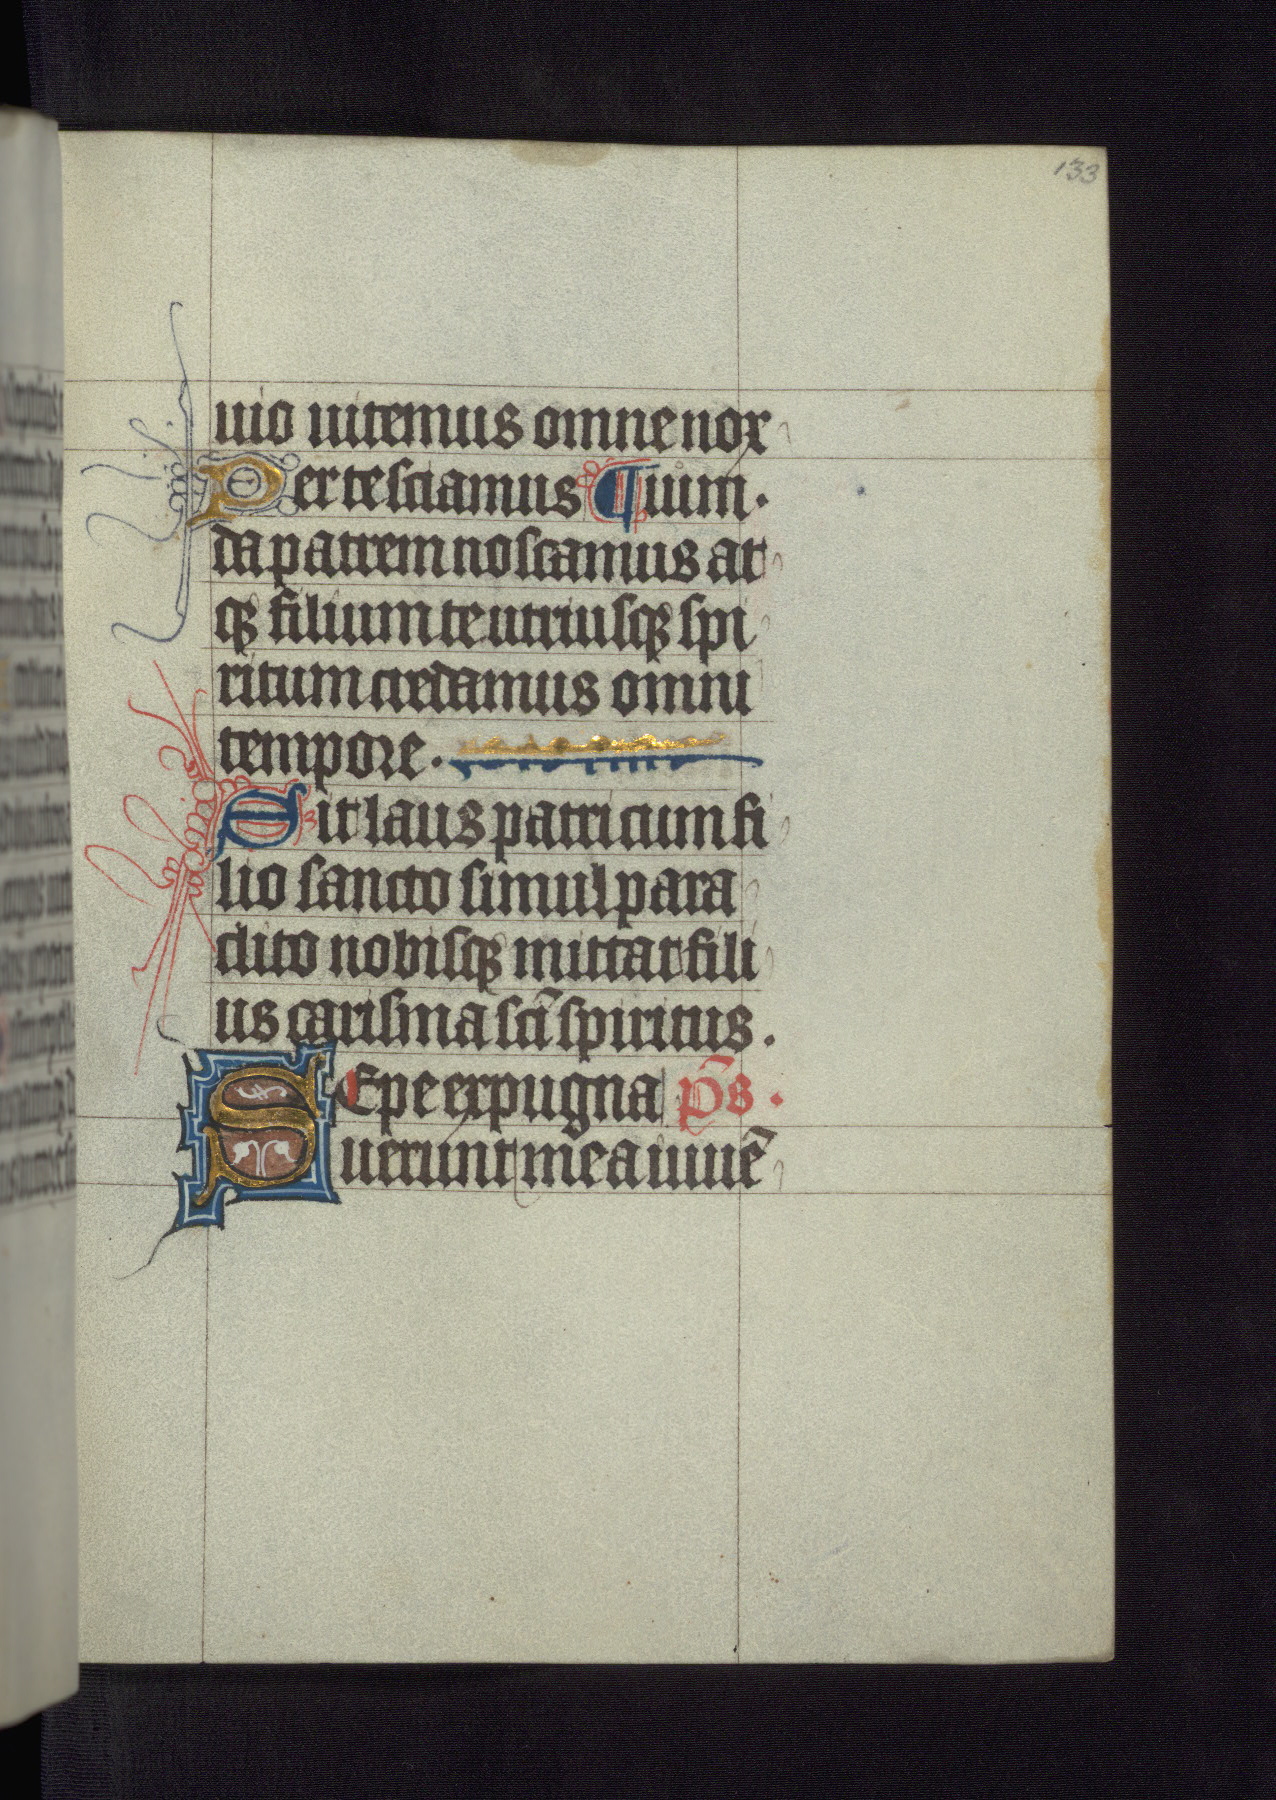 133
uio uitemus omne nox
Per te sciamus ium.
da patrem noscamus at
qꝫ filium te utriusqꝫ spi
ritum credamus omni
tempore.
Sit laus patri cum fi
lio sancto simul para
clito nobisqꝫ mittat fili
us carisma sc̄i spiritus.
SEpe expugna p̄s.
uerunt me a iuuē